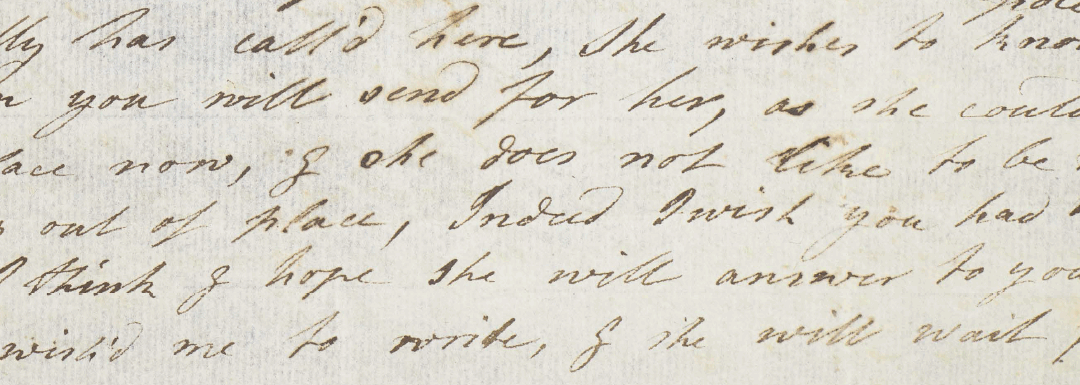 lly has call'd here, She wishes to know
n you will send for her, as she could
lace now, & she does not like to be
out of place, Indeed I wish you had
I think & hope she will answer to you
wish'd me to write, & she will wait